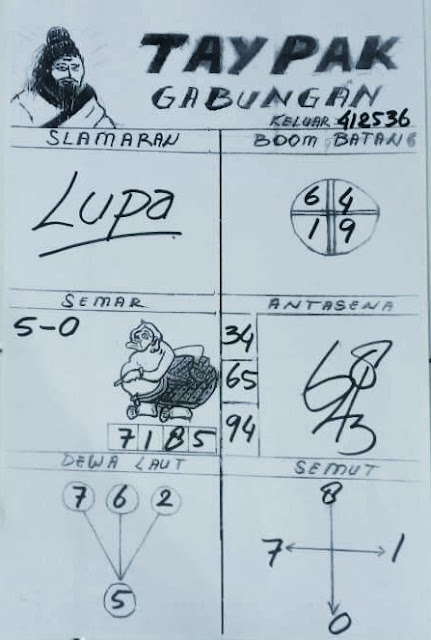 TAYPAK
GABUNGAN
KELUAR 412536
SLAMARAN
BOOM BATANG
Lupa
6 4
1 9
SEMAR
ANTASENA
5-0
34
65
94
7 1 8 5
68
43
DEWA LAUT
SEMUT
7 6 2
5
8
7 1
0